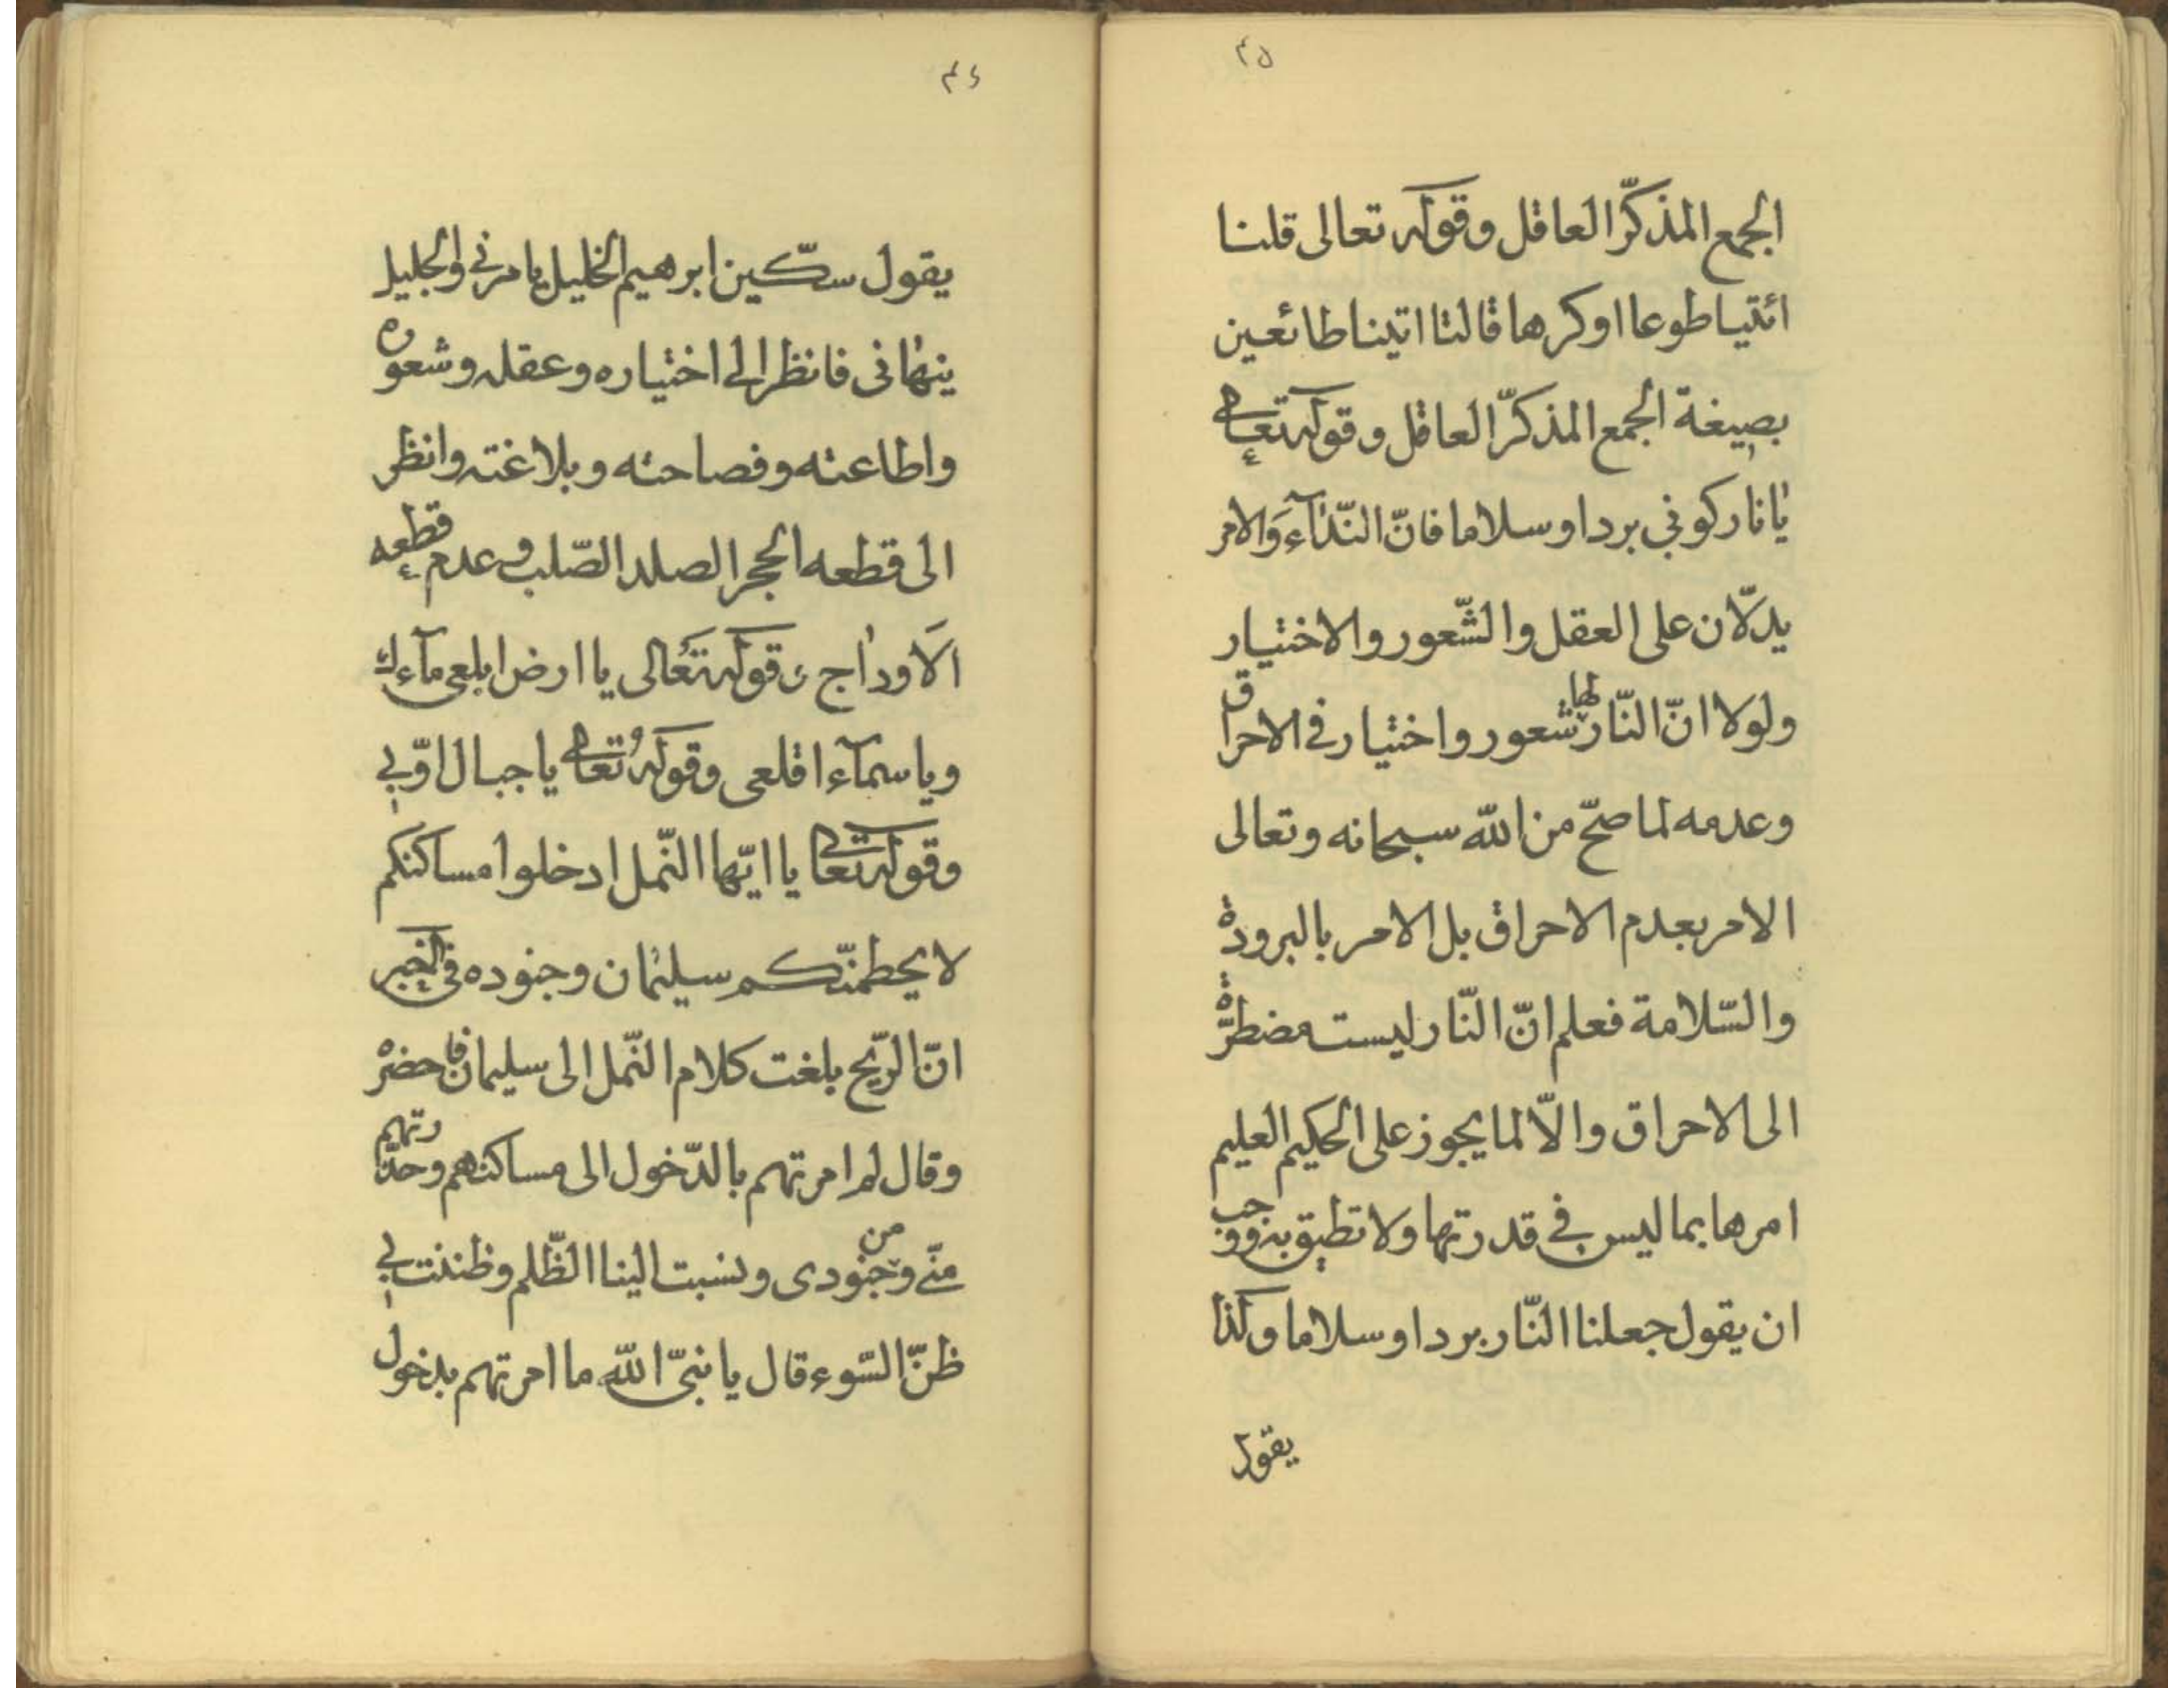 ۴۵
الجمع المذكّر العاقل وقوله تعالى قلنا
ائتيا طوعا او كرها قالتا اتينا طائعين
بصيغة الجمع المذكّر العاقل وقوله تعالى
يا نار كوني بردا وسلاما فانّ النّدآء والامر
يدلّان على العقل والشّعور والاختيار
ولولا انّ النّار لها شعور واختيار في الاحراق
وعدمه لما صحّ من اللّه سبحانه وتعالى
الامر بعدم الاحراق بل الامر بالبرودة
والسّلامة فعلم انّ النّار ليست مضطرّة
الى الاحراق والّا لما يجوز على الحكيم العليم
امرها بما ليس في قدرتها ولا تطيق به ووجب
ان يقول جعلنا النّار بردا وسلاما وكذا
يقول
۴۶
يقول سكّين ابرهيم الخليل يامرني والجليل
ينهاني فانظر الى اختياره وعقله وشعوره
واطاعته وفصاحته وبلاغته وانظر
الى قطعه الحجر الصلد الصّلب وعدم قطعه
الاوداج وقوله تعالى يا ارض ابلعي مآءك
ويا سمآء اقلعي وقوله تعالى يا جبال اوّبي
وقوله تعالى يا ايّها النّمل ادخلوا مساكنكم
لا يحطمنّكم سليمان وجنوده في الخبر
انّ الرّيح بلغت كلام النّمل الى سليمان فاحضره
وقال لم امرتهم بالدّخول الى مساكنهم وحذّرتهم
منّي ومن جنودي ونسبت الينا الظّلم وظننت بي
ظنّ السّوء قال يا نبيّ اللّه ما امرتهم بدخول